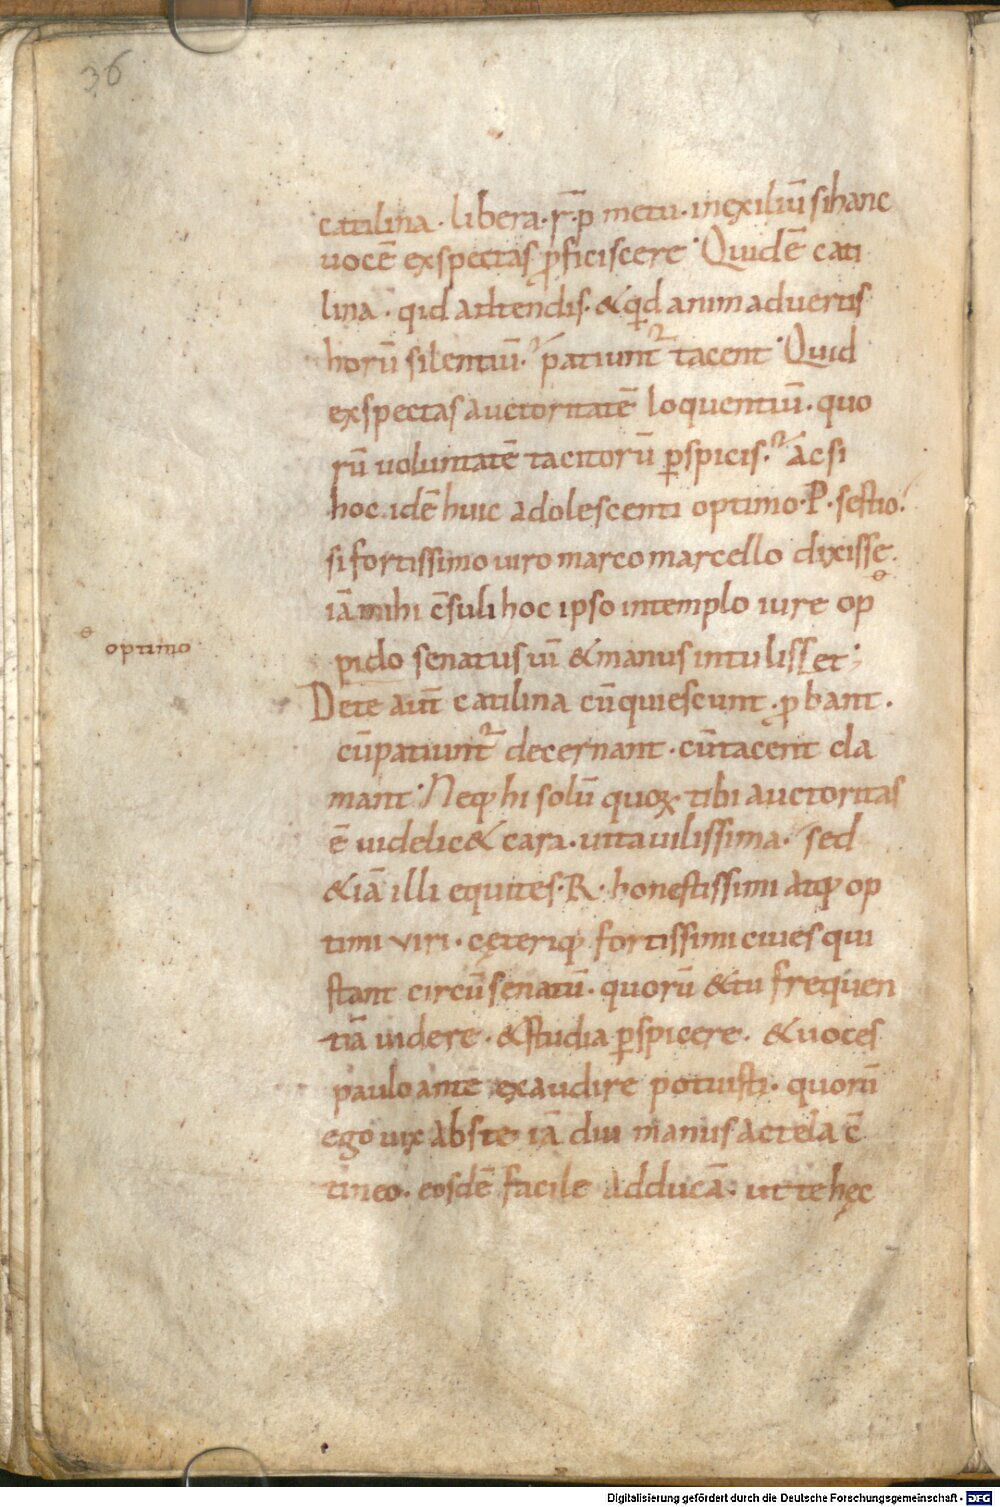 36
catilina · libera · r̄ · p̄ metu · inęxiliū si hanc
uocē exspectas p̄ficiscere · Quid ē cati
lina · qid adtendis · & qd animaduertis
horū silentiū · patiunt᷑ tacent · Quid
exspectas auctoritatē loquentiū · quo
rū uoluntatē tacitorū ꝑspicis · Ac si
hoc idē huic adolescenti optimo · P · sestio ·
si fortissimo uiro marco marcello dixisse ·
iā mihi c̄suli hoc ipso in templo iure op
optimo
pido senatus uī & manus intulisset ;
De te aut̄ catilina cū quiescunt · ꝓbant ·
cū patiunt᷑ decernant · cū tacent cla
mant · Neq; hi solū quoꝝ · tibi auctoritas
ē uidelic& cara · uita uilissima · sed
&iā illi equites · R · honestissimi atq; op
timi viri · cęteriq; fortissimi ciues qui
stant circū senatū · quorū & tu frequen
tiā uidere · & studia ꝑspicere · & uoces
paulo ante exaudire potuisti · quorū
ego uix abs te iā diu manus ac tela c̄
tineo · eosdē facile adducā · ut te hęc
Digitalisierung gefördert durch die Deutsche Forschungsgemeinschaft - DFG